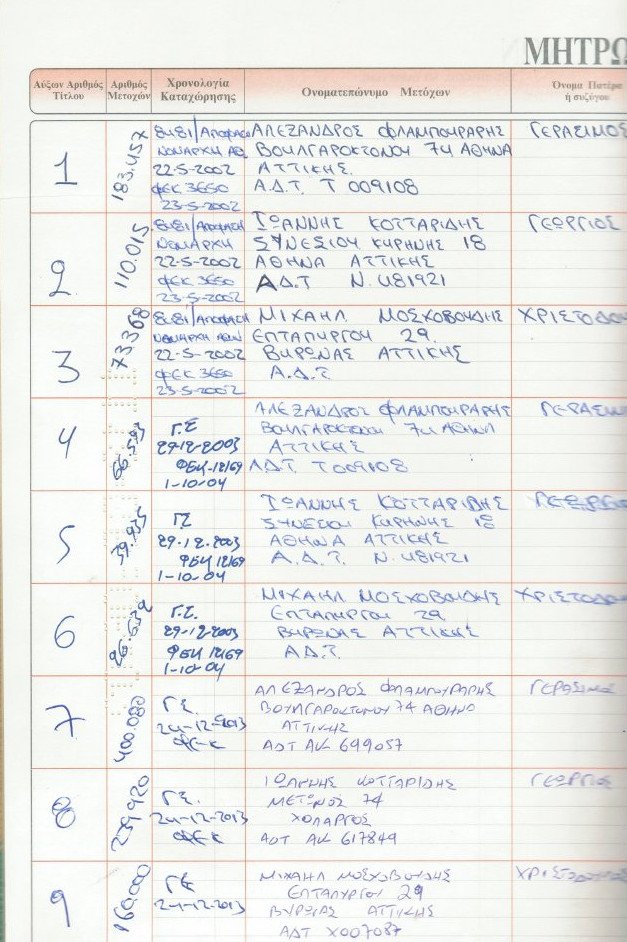 ΜΗΤΡΩ
Αύξων Αριθμός Τίτλου
Αριθμός Μετοχών
Χρονολογία Καταχώρησης
Ονοματεπώνυμο Μετόχων
Όνομα Πατέρα ή συζύγου
1 183.457 ΑΛΕΞΑΝΔΡΟΣ ΦΛΑΜΠΟΥΡΑΡΗΣ ΓΕΡΑΣΙΜΟΣ
ΝΟΜΑΡΧΗ ΑΘ ΒΟΥΛΓΑΡΟΚΤΟΝΟΥ 74 ΑΘΗΝΑ
22-5-2002 ΑΤΤΙΚΗΣ.
ΦΕΚ 3650 Α.Δ.Τ. Τ 009108
23-5-2002
2 110.015 ΙΩΑΝΝΗΣ ΚΟΤΤΑΡΙΔΗΣ ΓΕΩΡΓΙΟΣ
ΝΟΜΑΡΧΗ ΣΥΝΕΣΙΟΥ ΚΥΡΗΝΗΣ 18
22-5-2002 ΑΘΗΝΑ ΑΤΤΙΚΗΣ
ΦΕΚ 3650 Α.Δ.Τ Ν. 481921
23-5-2002
3 73.368 ΜΙΧΑΗΛ ΜΟΣΧΟΒΟΥΔΗΣ ΧΡΙΣΤΟΔΟΥ
ΝΟΜΑΡΧΗ ΕΠΤΑΠΥΡΓΟΥ 29.
22-5-2002 ΒΥΡΩΝΑΣ ΑΤΤΙΚΗΣ
ΦΕΚ 3650 Α.Δ.Τ
23-5-2002
4 ΑΛΕΞΑΝΔΡΟΣ ΦΛΑΜΠΟΥΡΑΡΗΣ
Γ.Σ ΒΟΥΛΓΑΡΟΚΤΟΝΟΥ 74 ΑΘΗΝΑ
29-12-2003 ΑΤΤΙΚΗΣ
ΦΕΚ 12169 Α.Δ.Τ. Τ 009108
1-10-04
5 39.935 ΙΩΑΝΝΗΣ ΚΟΤΤΑΡΙΔΗΣ
ΓΣ ΣΥΝΕΣΙΟΥ ΚΥΡΗΝΗΣ 18
29-12-2003 ΑΘΗΝΑ ΑΤΤΙΚΗΣ
ΦΕΚ 12169 Α.Δ.Τ. Ν. 481921
1-10-04
6 26.632 ΜΙΧΑΗΛ ΜΟΣΧΟΒΟΥΔΗΣ ΧΡΙΣΤΟΔΟΥ
Γ.Σ. ΕΠΤΑΠΥΡΓΟΥ 29
29-12-2003 ΒΥΡΩΝΑΣ ΑΤΤΙΚΗΣ
ΦΕΚ 12169 Α.Δ.Τ.
1-10-04
7 400.080 ΑΛΕΞΑΝΔΡΟΣ ΦΛΑΜΠΟΥΡΑΡΗΣ ΓΕΡΑΣΙΜΟΣ
Γ.Σ. ΒΟΥΛΓΑΡΟΚΤΟΝΟΥ 74 ΑΘΗΝΑ
24-12-2013 ΑΤΤΙΚΗΣ
ΑΔΤ ΑΚ 699057
8 239.920 ΙΩΑΝΝΗΣ ΚΟΤΤΑΡΙΔΗΣ ΓΕΩΡΓΙΟΣ
Γ.Σ. ΜΕΤΩΝΟΣ 74
24-12-2013 ΧΟΛΑΡΓΟΣ
ΑΔΤ ΑΚ 617849
9 160.000 ΜΙΧΑΗΛ ΜΟΣΧΟΒΟΥΔΗΣ
ΓΣ ΕΠΤΑΠΥΡΓΟΥ 29
24-12-2013 ΒΥΡΩΝΑΣ ΑΤΤΙΚΗΣ
ΑΔΤ Χ007087